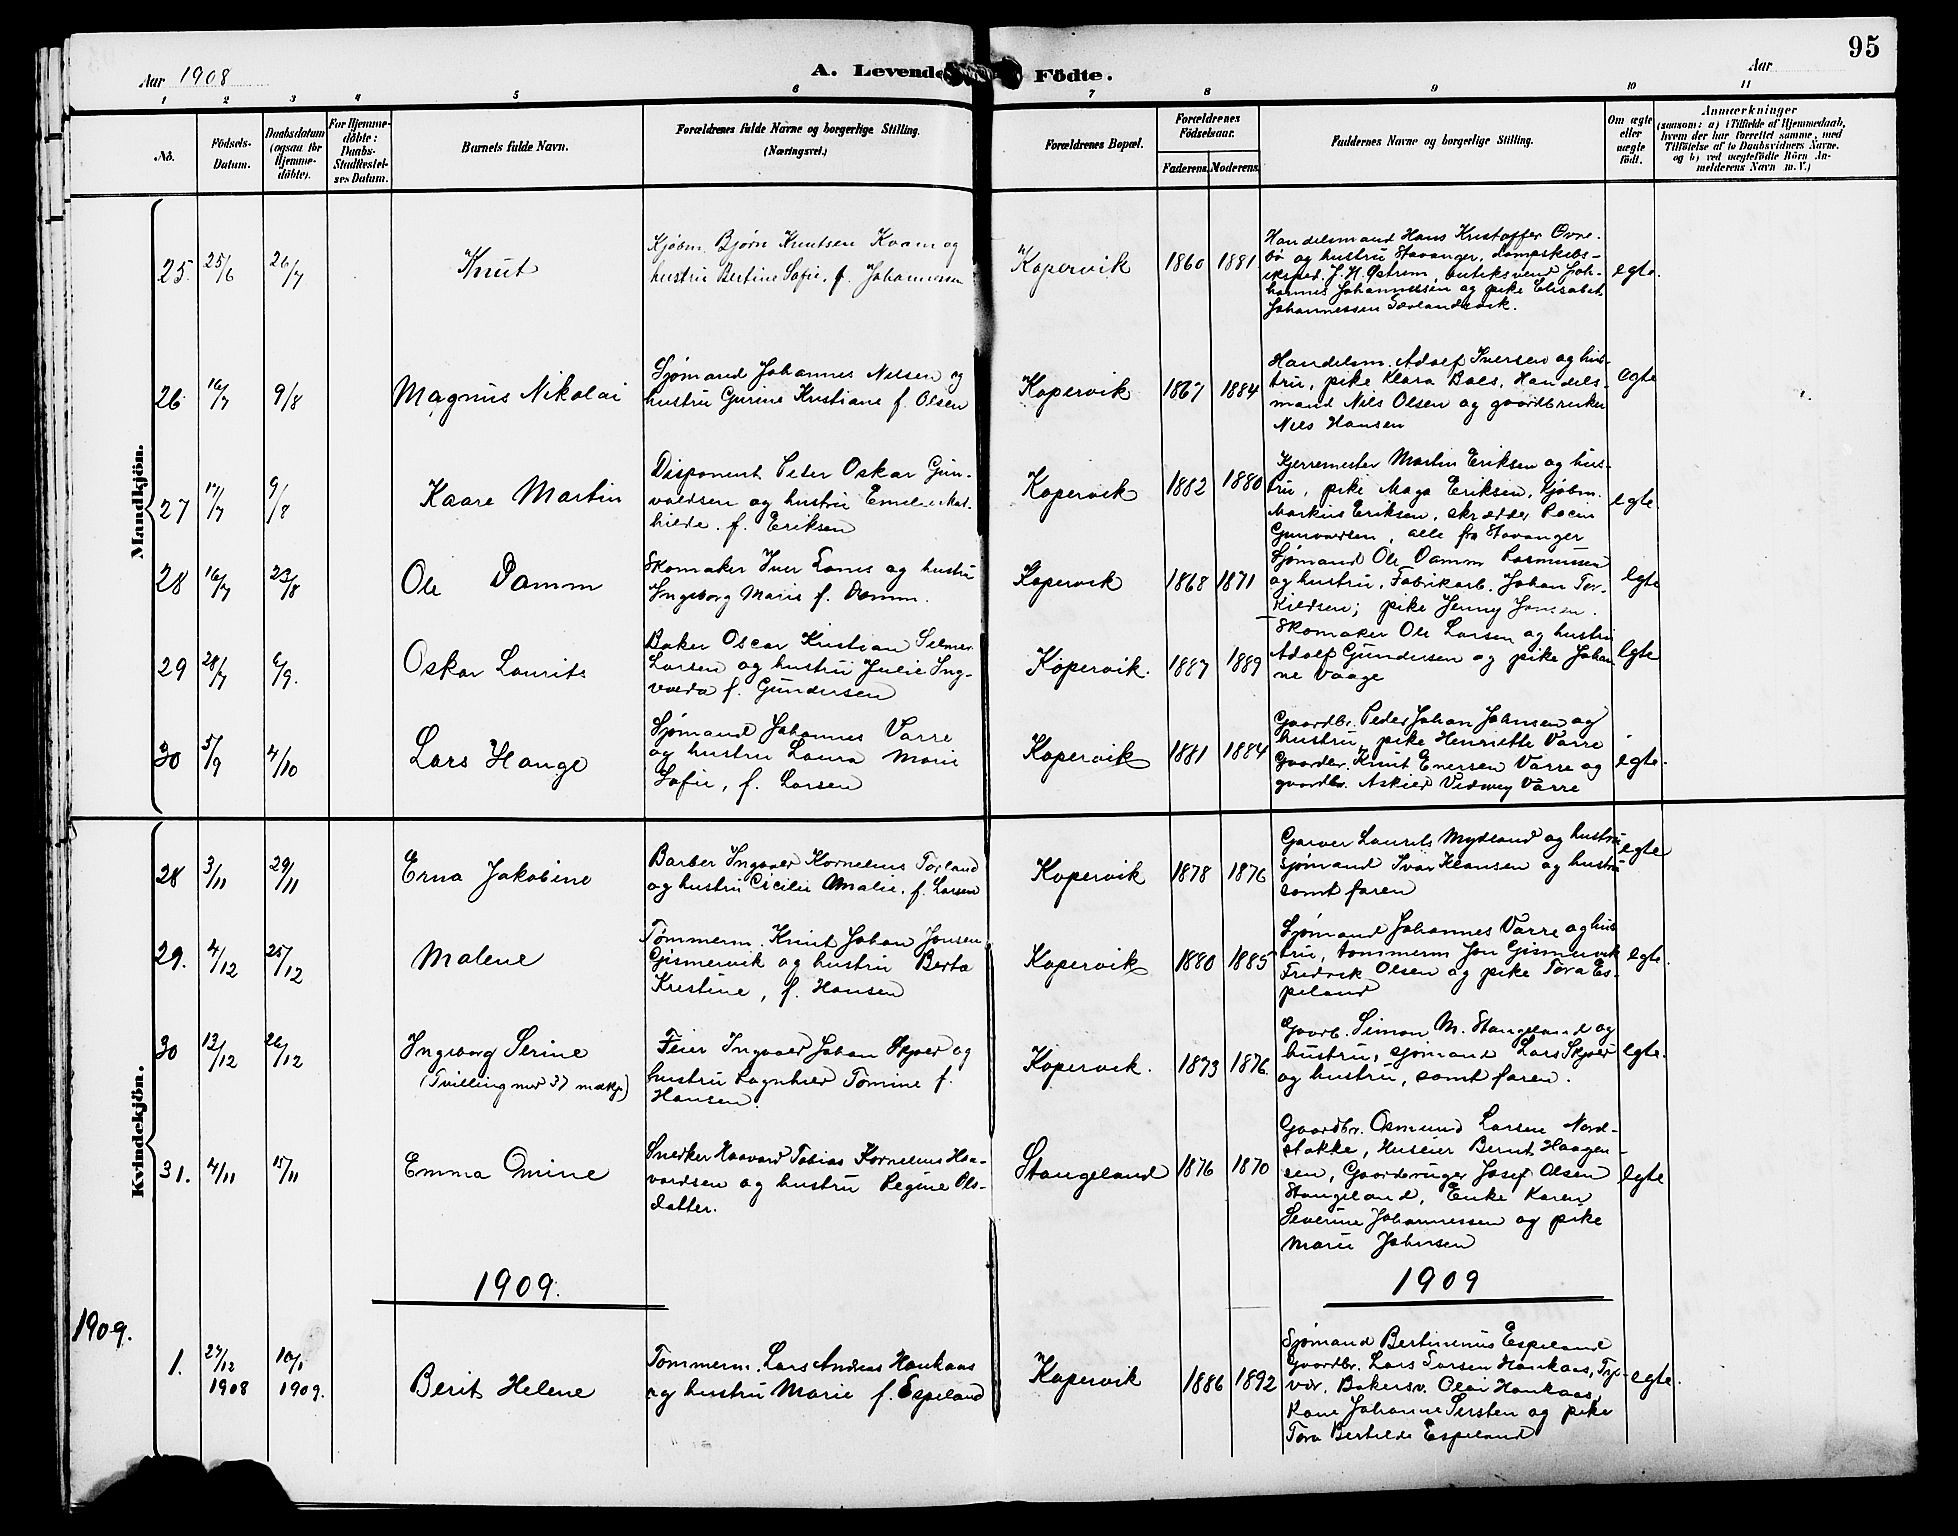 95
Aar 1908
A. Levende Födte.
Aar
1 2 3 4 5 6 7 8 9 10 11
No.
Födsels-
Datum.
Daabsdatum
(ogsaa for
Hjemme-
döbte).
For Hjemme-
döbte:
Daabs-
Stadfæstel-
ses Datum.
Barnets fulde Navn.
Forældrenes fulde Navne og borgerlige Stilling.
(Næringsvei.)
Forældrenes Bopæl.
Forældrenes
Födselsaar.
Faderens. Moderens.
Faddernes Navne og borgerlige Stilling.
Om ægte
eller
uægte
födt.
Anmærkninger
(saasom: a) i Tilfælde af Hjemmedaab,
hvem der har forrettet samme, med
Tilföielse af to Daabsvidners Navne.
og b) ved uægtefödte Börn An-
melderens Navn m. V.)
Mandkjön.
25. 25/6 26/7
Knut
Kjøbm. Bjørn Knutsen Kvam og
hustru Bertine Sofie, f. Johannessen
Kopervik 1860 1881
Handelsmand Hans Kristoffer Øvre-
bø og hustru Stavanger, dampskibs-
eksped. J. H. Østrem, butiksvend Joh-
hannes Johannessen og pike Elisabet
Johannessen Sævlandsvik.
egte.
26 16/7 9/8
Magnus Nikolai
Sjømand Johannes Nilsen og
hustru Gurine Kristiane f. Olsen
Kopervik 1867 1884
Handelsm. Adolf Iversen og hus-
tru, pike Klara Boes, Handels-
mand Nils Olsen og gaardbruker
Nils Hansen
egte
27 17/7 9/8
Kaare Martin
Disponent Peter Oskar Gun-
valdsen og hustru Emelie Mat-
hilde. f. Eriksen
Kopervik 1882 1880
Kjerremester Martin Eriksen og hus-
tru, pike Maga Eriksen, Kjøbm.
Markus Eriksen, skrædder
Gunvaldsen, alle fra Stavanger
egte.
28 16/7 23/8
Ole Damm
Skomaker Iver Lones og hustru
Ingeborg Marie f. Damm.
Kopervik 1868 1871
Sjømand Ole Damm Rasmussen
og hustru, Fabrikarb. Johan Tor-
kildsen; pike Jenny Jansen.
egte
29 28/7 6/9.
Oskar Laurits
Baker Oscar Kristian Selmer
Larsen og hustru Julie Ing-
valda f. Gundersen
Kopervik. 1887 1889
Skomaker Ole Larsen og hustru
Adolf Gundersen og pike Johan
ne Vaage
egte
30 5/9 4/10
Lars Hauge
Sjømand Johannes Varre
og hustru Laura Marie
Sofie, f. Larsen
Kopervik 1881 1884
Gaardbr. Peder Johan Johnsen og
hustru, pike Henriette Varre
Gaardbr. Knut Enersen Varre og
gaardbr. Askild Vidvey Varre
egte.
Kvindekjön.
28 3/11 29/11
Erna Jakobine
Barber Ingvald Kornelius Torland
og hustru Cicilie Malie. f. Larsen
Kopervik 1878 1876
Garver Laurits Mydland og hustru
sjømand Ivar Klausen og hustru
samt faren
egte
29. 4/12 25/12
Malene
Tømmerm. Knut Johan Jonsen
Gismervik og hustru Berta
Kristine, f. Hansen
Kopervik 1880 1885
Sjømand Johannes Varre og hus-
tru, tømmerm Jon Gismervik
Fredrik Olsen og pike Tora Es-
peland
egte.
30 13/12 26/12
Ingeborg Serine
(Tvilling med 37 mandkj)
Feier Ingvald Johan Skjold og
hustru Ragnhild Tomine f.
Hansen.
Kopervik. 1873 1876
Gaardb. Simon M. Stangeland og
hustru, sjømand Lars Skjold
og hustru, samt faren.
egte.
31. 4/11 15/11
Emma Omine
Snedker Haavard Tobias Kornelius Haa-
vardsen og hustru Regine Ols-
datter.
Stangeland 1876 1870
Gaardbr. Osmund Larsen Nord-
stokke, Huseier Bernt Haagen-
sen, Gaardbruger Josef Olsen
Stangeland, Enke Karen
Severine Johannessen og pike
Marie Johnsen
egte
1909. 1909
1909.
1. 27/12 1908 10/1 1909.
Berit Helene
Tømmerm. Lars Andreas Haukaas
og hustru Marie f. Espeland
Kopervik 1886 1892
Sjømand Bertinius Espeland
Gaardbr. Lars Larsen Haukaas, Tys-
vær. Bakersv. Olai Haukaas,
Kone Johanne Sirsten og pike
Tora Bertilde Espeland
egte.